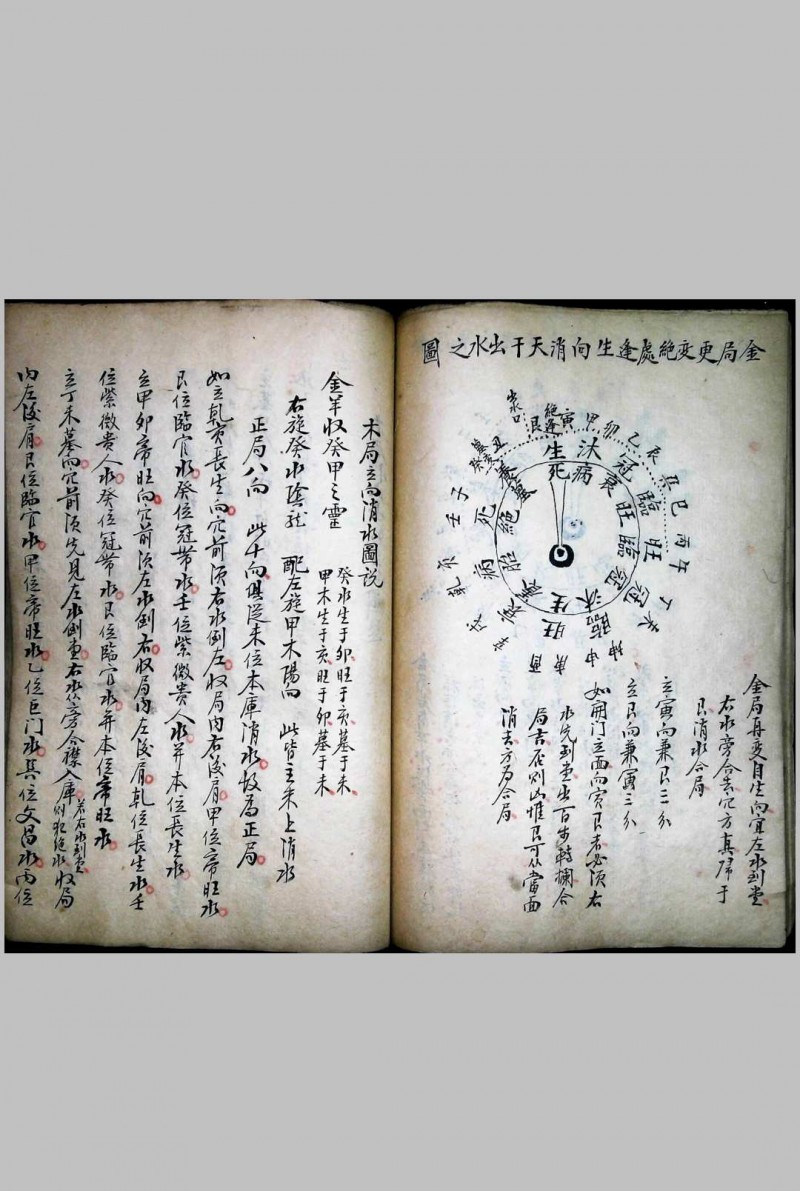 金局更变絶處逢生向消天干出水之圖
出水口
絶逢
艮
寅
甲
卯
乙
辰
巽
巳
丙
午
丁
未
坤
申
庚
酉
辛
戌
乾
亥
壬
子
癸
丑
生
沐
冠
臨
旺
病
死
養
死
病
衰
旺
臨
冠
沐
生
養
胎
絶
墓
金局再变自生向宜左水到堂
右水旁合去穴方真歸于
艮消水合局
立寅向兼艮二分
立艮向兼寅三分
如開门立向向寅艮者必須右
水先到堂出百步轉欄合
局吉否則凶惟艮可从當面
消去方为合局
木局立向消水圖説
金羊收癸甲之靈
癸水生于卯旺于亥墓于未
甲木生于亥旺于卯墓于未
右旋癸水陰龍 配左旋甲木陽向 此皆主未上消水
正局八向 此十向俱從未位本庫消水故為正局
如立乾亥長生向穴前須右水倒左收局内右後肩甲位帝旺水
艮位臨官水癸位冠带水壬位紫微貴人水并本位長生水
立甲卯帝旺向穴前須左水倒右收局内左後肩乾位長生水壬
位紫微貴人水癸位冠帶水艮位臨官水并本位帝旺水
立丁未墓向穴前須先見左水倒堂右水从旁合襟入庫若右水到堂則犯絶水收局
内左後肩艮位臨官水甲位帝旺水乙位巨门水巽位文昌水丙位